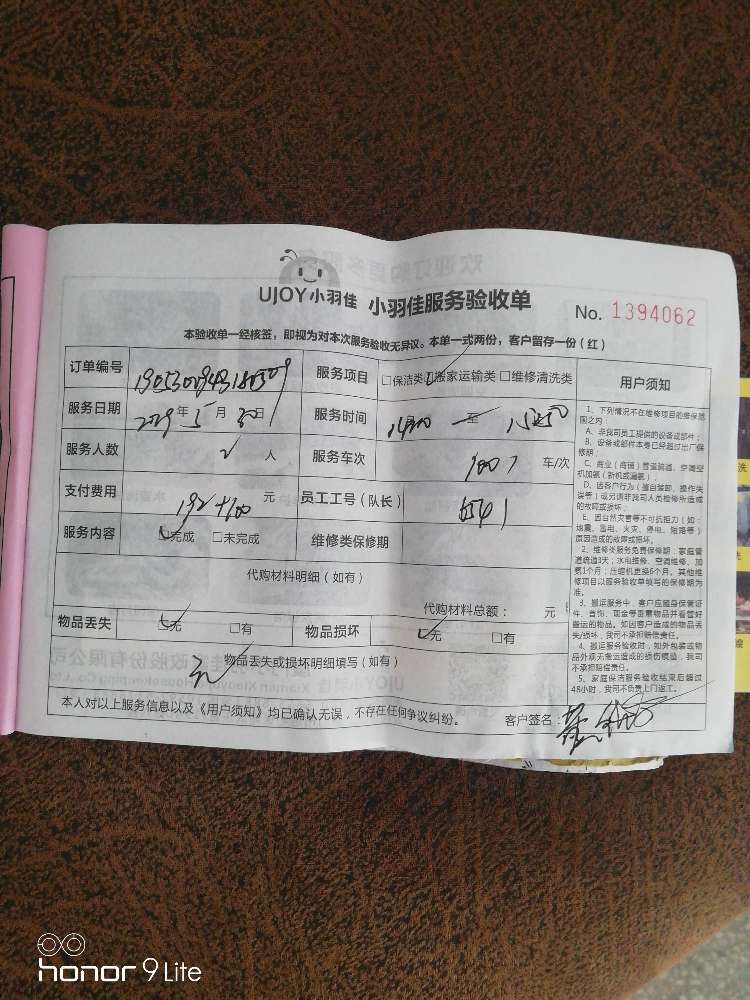 UJOY小羽佳 小羽佳服务验收单
No. 1394062
本验收单一经核签，即视为对本次服务验收无异议。本单一式两份，客户留存一份（红）
订单编号
服务项目 □保洁类 □搬家运输类 □维修清洗类
服务日期 2019年5月30日
服务时间 至
服务人数 2 人
服务车次 车/次
支付费用 192+100 元
员工工号（队长）
服务内容 □完成 □未完成
维修类保修期
代购材料明细（如有）
代购材料总额： 元
物品丢失 □无 □有
物品损坏 □无 □有
无 物品丢失或损坏明细填写（如有）
本人对以上服务信息以及《用户须知》均已确认无误，不存在任何争议纠纷。
客户签名：
用户须知
1、下列情况不在维修项目的维保范
围之内：
A、非我司员工提供的设备或部件；
B、设备或部件本身已经超过出厂保
修期；
C、商业（商铺）管道疏通、空调空
机加氨（新机或漏氨）；
D、因客户行为（擅自装卸、操作失
误等）或另请非我司人员检修所造成
的故障或损坏；
E、因自然灾害等不可抗拒力（如：
地震、雷电、火灾、停电、短路等）
原因造成的故障或损坏。
2、维修类服务免费保修期：家庭管
道疏通3天；水电维修、空调维修、加
氨1个月；压缩机更换6个月。其他维
修项目以服务验收单填写的保修期为
准。
3、搬运服务中，客户应随身保管证
件、首饰、现金等贵重物品并看管好
搬运的物品。如因客户造成的物品丢
失/损坏，我司不承担赔偿责任。
4、搬运服务验收时，如外包装或物
品外观无搬运造成的损伤痕迹，我司
不承担赔偿责任。
5、家庭保洁服务验收结束后超过
48小时，我司不负责上门返工。
honor 9 Lite